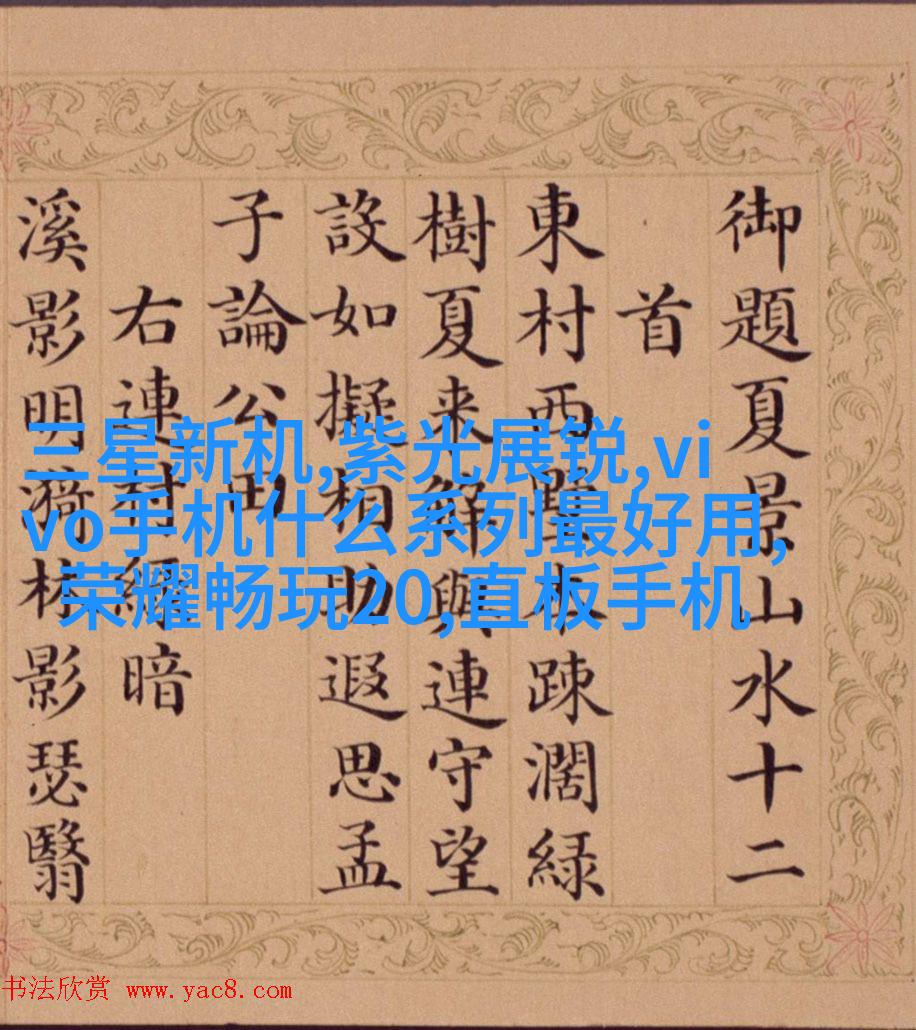 御題夏景山水十二
首
東村西墅本疎濶緑
樹夏来與連守望
設如擬相助遐思孟
子論公田
右連村緑暗
溪影明漪林影瑟翳
三星新机,紫光展锐,vi
vo手机什么系列最好用,
荣耀畅玩20,直板手机
书法欣赏 www.yac8.com